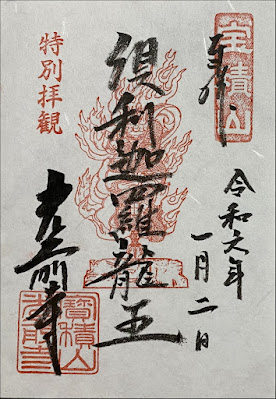 宝積山
奉拝
令和六年
一月二日
倶利迦羅龍王
特別拝観
光前寺
寶積山
光前寺